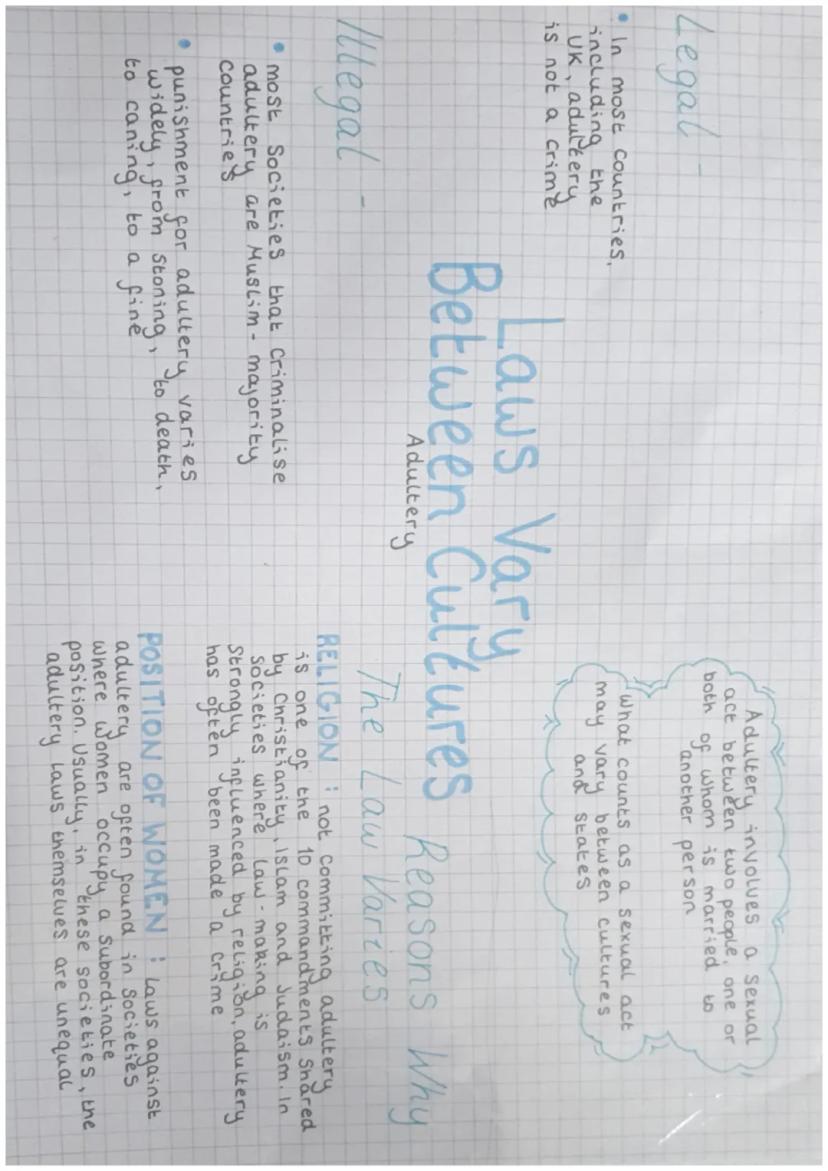 Laws Vary
Between Cultures
Adultery
Legal -
• In most countries,
including the
UK, adultery
is not a crime
Illegal -
• most societies that criminalise
adultery are Muslim-majority
countries
• punishment for adultery varies
widely, from stoning, to death,
to caning, to a fine
Adultery involves a sexual
act between two people, one or
both of whom is married to
another person
What counts as a sexual act
may vary between cultures
and states
Reasons Why
The Law Varies
RELIGION : not committing adultery
is one of the 10 commandments shared
by Christianity, Islam and Judaism. In
societies where law-making is
strongly influenced by religion, adultery
has often been made a crime
POSITION OF WOMEN : Laws against
adultery are often found in societies
where women occupy a subordinate
position. Usually, in these societies, the
adultery laws themselves are unequal